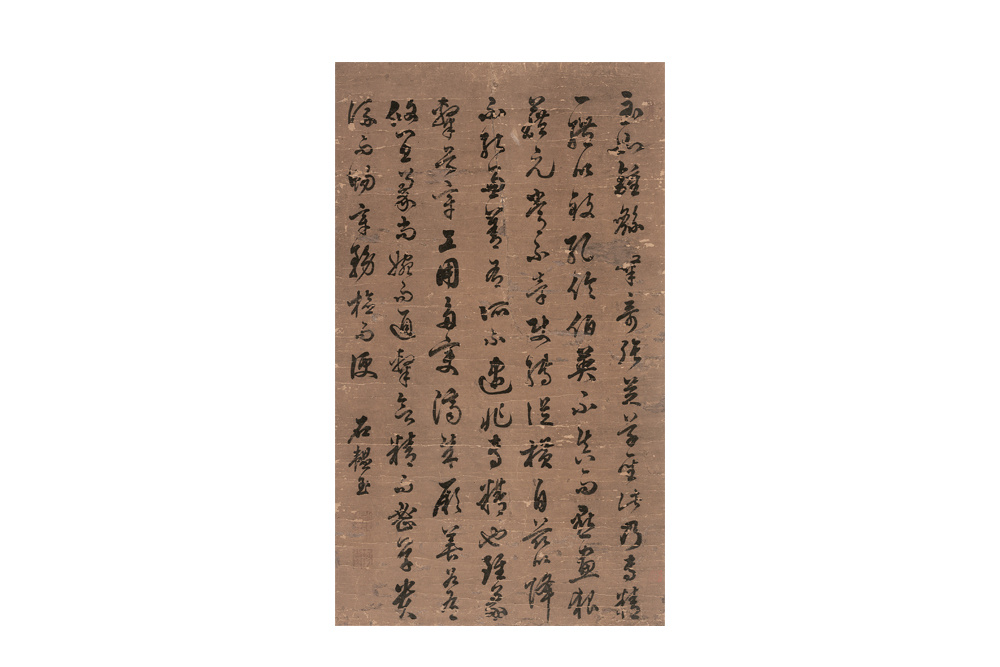 至如鍾繇隸奇張芝草聖此乃專精
一體以致絕倫伯英不真而點畫狼
藉元常不草使轉縱橫自茲以降
不能兼善有所不逮非專精也雖篆
隸草章工用多變濟成厥美各有
攸宜篆尚婉而通隸欲精而密草貴
流而暢章務檢而便
石韞玉